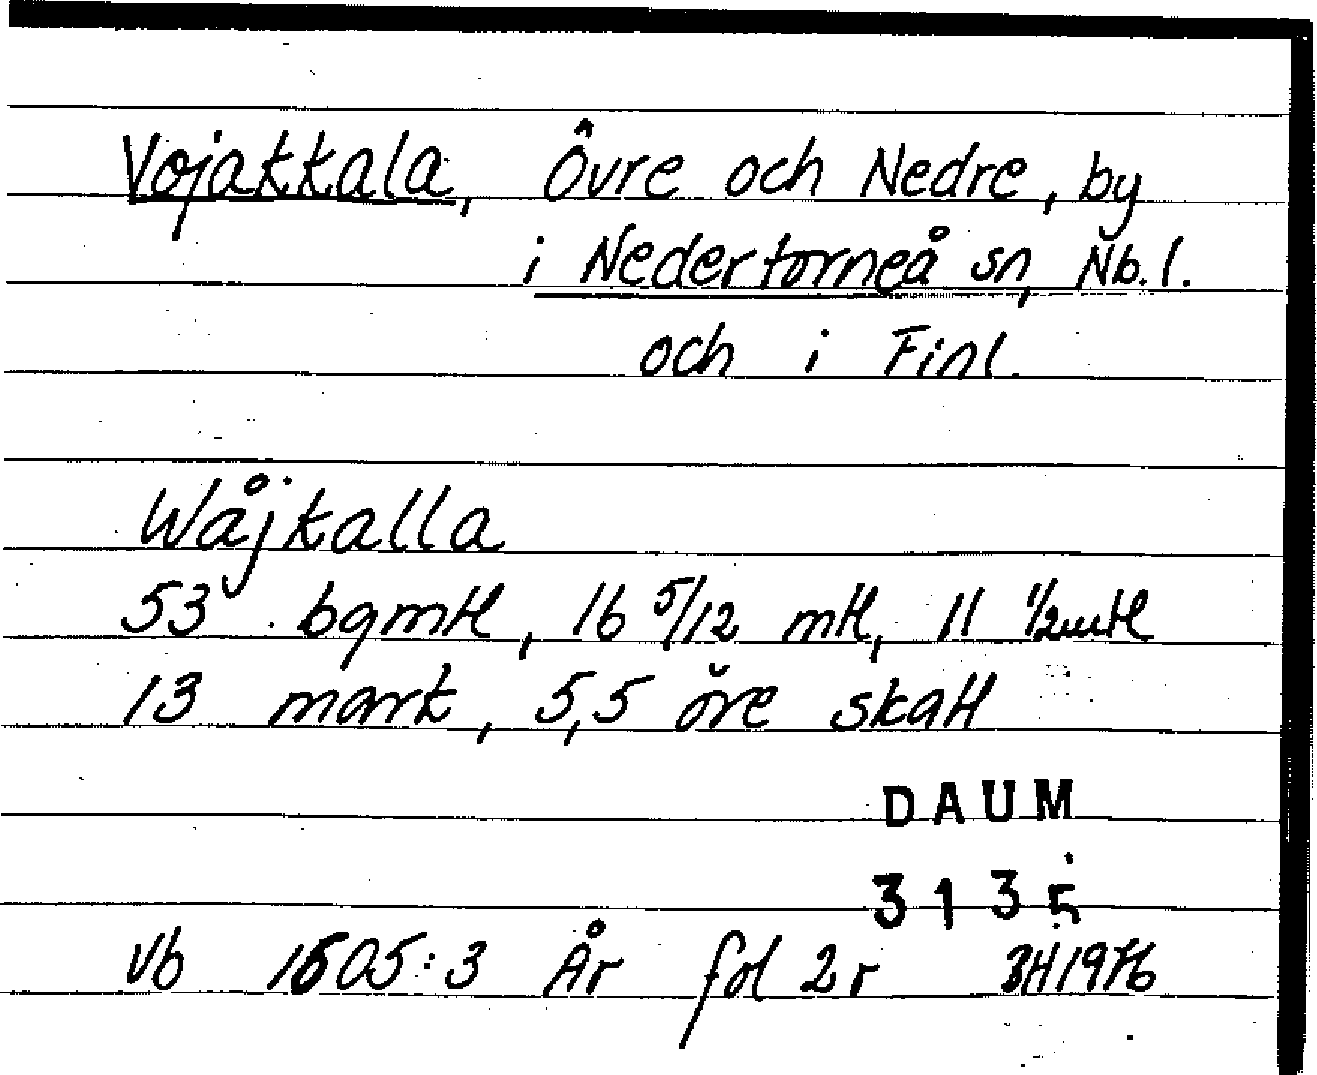 Vojakkala, Övre och Nedre, by
i Nedertorneå sn, Nb. l.
och i Finl.
Wåjkalla
53 bgmtl, 16 5/12 mtl, 11 1/2mtl
13 mark, 5,5 öre skatt
DAUM
3135
Vb 1605:3 År fol 2r BH 1976